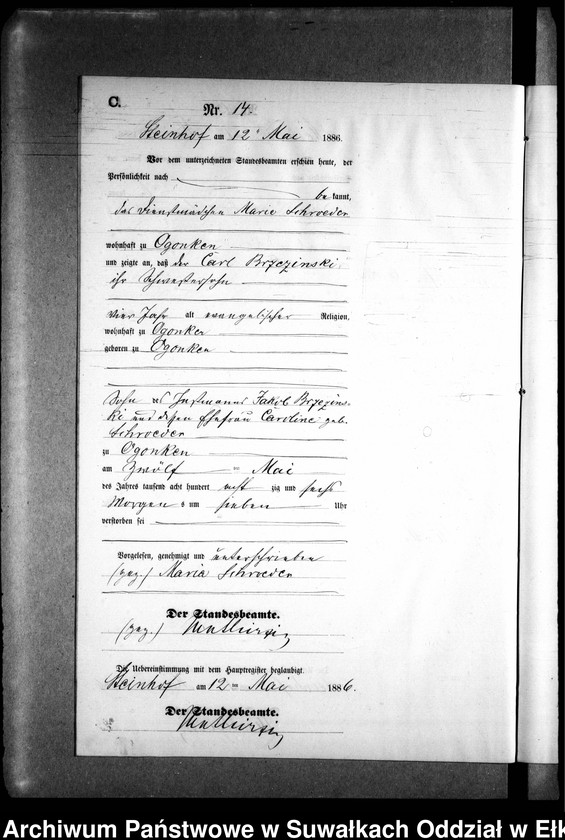 C.
Nr. 14.
Steinhof am 12 Mai 1886.
Vor dem unterzeichneten Standesbeamten erschien heute, der
Persönlichkeit nach
bekannt,
das Dienstmädchen Marie Schroeder
wohnhaft zu Ogonken
und zeigte an, daß der Carl Brzezinski
ihr Schwestersohn
vier Jahr alt evangelischer Religion,
wohnhaft zu Ogonken
geboren zu Ogonken
Sohn des Instmanns Jakob Brzezins-
ki und dessen Ehefrau Caroline geb.
Schroeder
zu Ogonken
am zwölf Mai
des Jahres tausend acht hundert acht zig und sechs
Morgens um sieben Uhr
verstorben sei
Vorgelesen, genehmigt und unterschrieben
(gez.) Maria Schroeder
Der Standesbeamte.
(gez.)
Die Uebereinstimmung mit dem Hauptregister beglaubigt.
Steinhof am 12 Mai 1886.
Der Standesbeamte.
Archiwum Państwowe w Suwałkach Oddział w Ełk